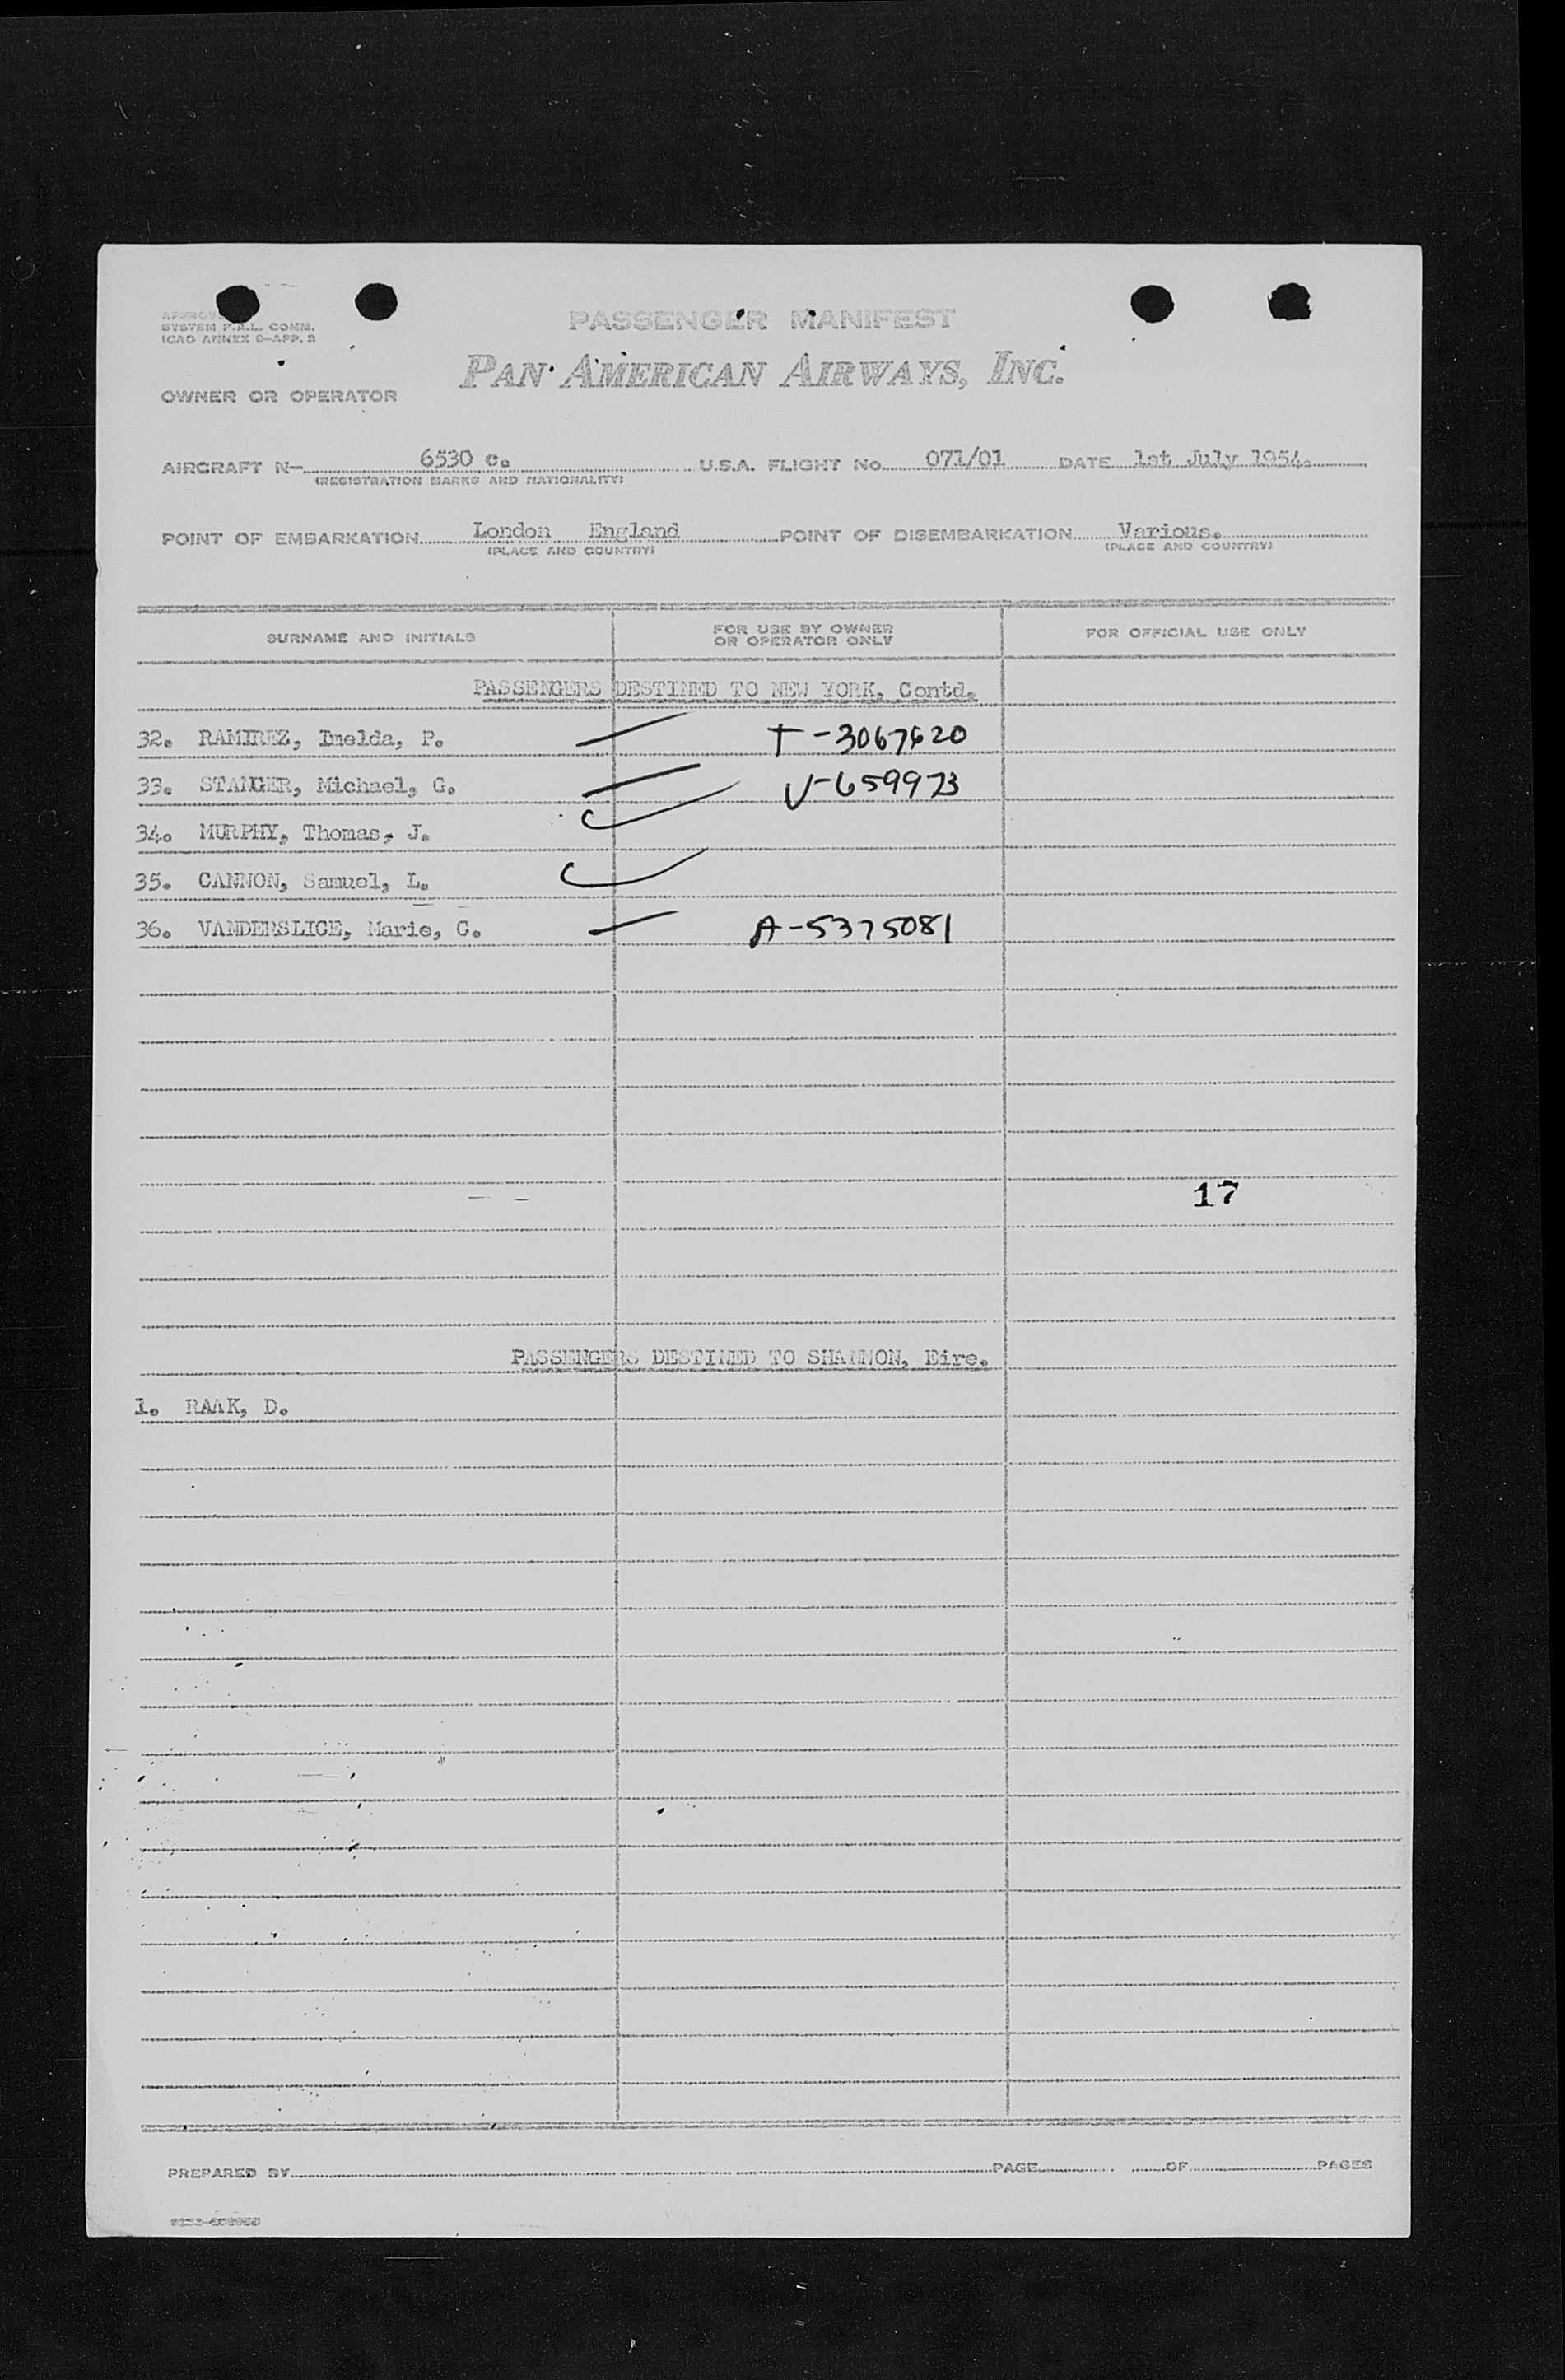 SYSTEM F.A.L. COMM.
ICAO ANNEX 9-APP. B
PASSENGER MANIFEST
PAN AMERICAN AIRWAYS, INC.
OWNER OR OPERATOR
AIRCRAFT N- 6530 c. U.S.A. FLIGHT No. 071/01 DATE 1st July 1954.
(REGISTRATION MARKS AND NATIONALITY)
POINT OF EMBARKATION London England POINT OF DISEMBARKATION Various.
(PLACE AND COUNTRY) (PLACE AND COUNTRY)
SURNAME AND INITIALS FOR USE BY OWNER OR OPERATOR ONLY FOR OFFICIAL USE ONLY
PASSENGERS DESTINED TO NEW YORK, Contd.
32. RAMIREZ, Imelda, P. T-3067620
33. STANGER, Michael, G. V-659973
34. MURPHY, Thomas, J.
35. CANNON, Samuel, L.
36. VANDERSLICE, Marie, C. A-5375081
17
PASSENGERS DESTINED TO SHANNON, Eire.
1. RAAK, D.
PREPARED BY PAGE OF PAGES